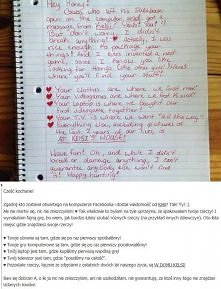 Hey Honey!
Guess who left his Facebook
open on the computer and got a
message from Kelsi? (Yeah! You!!)
But Don't worry, I didn't
break anything! ♥ Actually, I was
nice enough to package your
things! And I even invented a neat
game, since I know you like
looking for things like other girls' 
where you'll find your stuff!
♥ Your clothes are where we first met!
♥ Your videogames are where we first kissed!
♥ Your laptop is where we bought our
first videogame together!
♥ Your T.V. is where we went "all the way"
♥ Everything else, including pictures of
the last 2 years of our lives, is
AT KELSI'S HOUSE!
Have fun! Oh, and while I didn't
break or damage anything, I can't
guarantee anybody else won't find
it!
Cześć kochanie!
Zgadnij kto zostawił otwartego na komputerze Facebooka i dostał wiadomość od Kelsi? Tak! Ty! :)
Ale nie martw się, nic nie zniszczyłam! ♥ Tak właściwie to byłam na tyle uprzejma, że spakowałam twoje rzeczy! I
wynalazłam fajną grę, bo wiem, jak bardzo lubisz szukać różnych rzeczy (na przykład innych dziewczyn). Oto kilka
miejsc gdzie znajdziesz swoje rzeczy!
♥ Twoje ubrania są tam, gdzie się po raz pierwszy spotkaliśmy!
♥ Twoje gry komputerowe są tam, gdzie się po raz pierwszy pocałowaliśmy!
♥ Twój laptop jest tam, gdzie kupiliśmy pierwszą wspólną grę!
♥ Twój telewizor jest tam, gdzie "poszliśmy na całość".
♥ Pozostałe rzeczy, łącznie ze zdjęciami z ostatnich dwóch lat naszego życia, są W DOMU KELSI!
Baw się dobrze! A, o ile ja nic nie zniszczyłam, ani nie uszkodziłam, nie gwarantuję, że ktoś inny tego nie znajdzie!